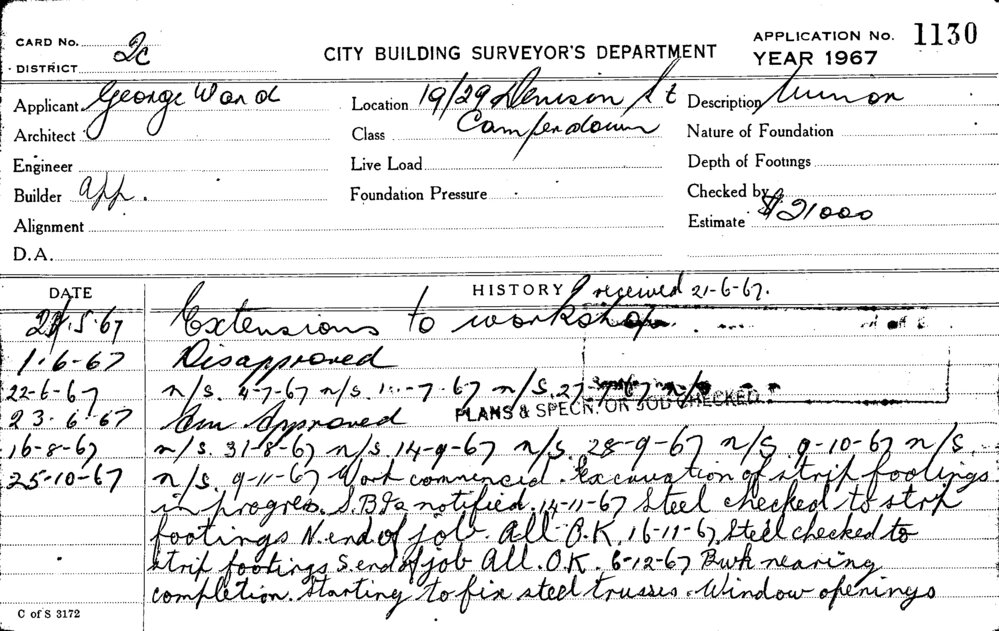 CARD No. 2c
DISTRICT
CITY BUILDING SURVEYOR'S DEPARTMENT
APPLICATION No. 1130
YEAR 1967
Applicant George Ward
Location 19/29 Denison St
Camperdown
Description
Architect
Class
Nature of Foundation
Engineer
Live Load
Depth of Footings
Builder app.
Foundation Pressure
Checked by
Alignment
Estimate $21000
D.A.
DATE
HISTORY received 21-6-67.
5.67 Extensions to workshop
1.6-67 Disapproved
22-6-67 n/s. 4-7-67 n/s. -7-67 n/s. 27-7-67 n/s
23.6.67 Approved
PLANS & SPECN. ON JOB CHECKED.
16-8-67 n/s. 31-8-67 n/s. 14-9-67 n/s. 28-9-67 n/s. 9-10-67 n/s.
25-10-67 n/s. 9-11-67 Work commenced. Excavation of strip footings
in progress. notified. 14-11-67 Steel checked to strip
footings N. end of job. All O.K. 16-11-67 Steel checked to
strip footings S. end of job All. O.K. 6-12-67 Bwk nearing
completion. Starting to fix steel trusses. Window openings
C of S 3172